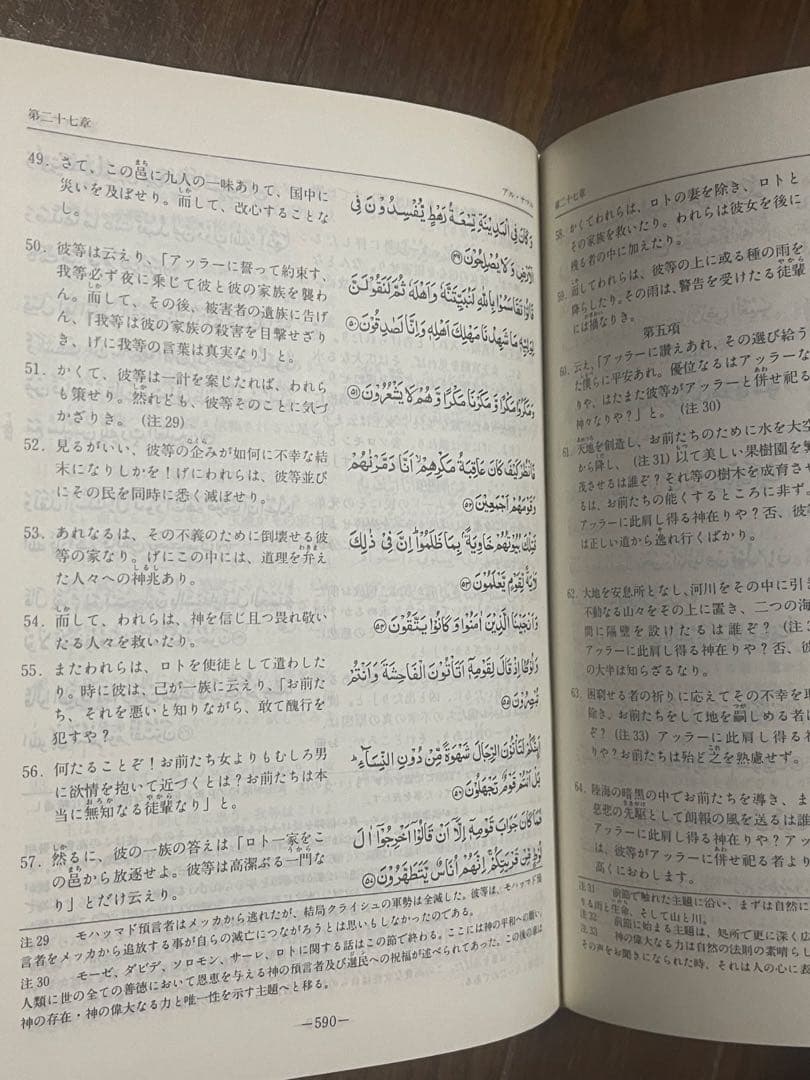 第二十七章
アル・ナムル
49. さて、この邑に九人の一味ありて、国中に
災いを及ぼせり。而して、改心することな
し。
50. 彼等は云えり、「アッラーに誓って約束す、
我等必ず夜に乗じて彼と彼の家族を襲わ
ん。而して、その後、被害者の遺族に告げ
ん、『我等は彼の家族の殺害を目撃せざり
き、げに我等の言葉は真実なり』と。
51. かくて、彼等は一計を案じたれば、われら
も策せり。然れども、彼等そのことに気づ
かざりき。(注29)
52. 見るがいい、彼等の企みが如何に不幸な結
末になりしかを!げにわれらは、彼等並び
にその民を同時に悉く滅ぼせり。
53. あれなるは、その不義のために倒壊せる彼
等の家なり。げにこの中には、道理を弁え
た人々への神兆あり。
54. 而して、われらは、神を信じ且つ畏れ敬い
たる人々を救いたり。
55. またわれらは、ロトを使徒として遣わした
り。時に彼は、己が一族に云えり、「お前た
ち、それを悪いと知りながら、敢て醜行を
犯すや?
56. 何たることぞ!お前たち女よりもむしろ男
に欲情を抱いて近づくとは?お前たちは本
当に無知なる徒輩なり」と。
57. 然るに、彼の一族の答えは「ロト一家をこ
の邑から放逐せよ。彼等は高潔ぶる一門な
り」とだけ云えり。
وَكَانَ فِي الْمَدِيْنَةِ تِسْعَةُ رَهْطٍ يُّفْسِدُوْنَ فِي
الْاَرْضِ وَلَا يُصْلِحُوْنَ ۴۹
قَالُوْا تَقَاسَمُوْا بِاللّٰهِ لَنُبَيِّتَنَّهٗ وَاَهْلَهٗ ثُمَّ لَنَقُوْلَنَّ
لِوَلِيِّهٖ مَا شَهِدْنَا مَهْلِكَ اَهْلِهٖ وَاِنَّا لَصٰدِقُوْنَ ۵۰
وَمَكَرُوْا مَكْرًا وَّمَكَرْنَا مَكْرًا وَّهُمْ لَا يَشْعُرُوْنَ ۵۱
فَانْظُرْ كَيْفَ كَانَ عَاقِبَةُ مَكْرِهِمْ اَنَّا دَمَّرْنٰهُمْ
وَقَوْمَهُمْ اَجْمَعِيْنَ ۵۲
فَتِلْكَ بُيُوْتُهُمْ خَاوِيَةً بِمَا ظَلَمُوْا اِنَّ فِيْ ذٰلِكَ
لَاٰيَةً لِّقَوْمٍ يَّعْلَمُوْنَ ۵۳
وَاَنْجَيْنَا الَّذِيْنَ اٰمَنُوْا وَكَانُوْا يَتَّقُوْنَ ۵۴
وَلُوْطًا اِذْ قَالَ لِقَوْمِهٖٓ اَتَاْتُوْنَ الْفَاحِشَةَ وَاَنْتُمْ
تُبْصِرُوْنَ ۵۵
اَئِنَّكُمْ لَتَاْتُوْنَ الرِّجَالَ شَهْوَةً مِّنْ دُوْنِ النِّسَآءِ
بَلْ اَنْتُمْ قَوْمٌ تَجْهَلُوْنَ ۵۶
فَمَا كَانَ جَوَابَ قَوْمِهٖٓ اِلَّآ اَنْ قَالُوْٓا اَخْرِجُوْٓا اٰلَ
لُوْطٍ مِّنْ قَرْيَتِكُمْ اِنَّهُمْ اُنَاسٌ يَّتَطَهَّرُوْنَ ۵۷
注29 モハッマド預言者はメッカから逃れたが、結局クライシュの軍勢は全滅した。彼等は、モハッマド預
言者をメッカから追放する事が自らの滅亡につながろうとは思いもしなかったのである。
注30 モーゼ、ダビデ、ソロモン、サーレ、ロトに関する話はこの節で終わる。ここには神の平和への願い、
人類に世の全ての善徳において恩恵を与える神の預言者及び選民への祝福が述べられてあった。この後の章は
神の存在・神の偉大なる力と唯一性を示す主題へと移る。
—590—
第二十七章
58. かくてわれらは、ロトの妻を除き、ロトと
その家族を救いたり。われらは彼女を後に
残る者の中に加えたり。
59. 而してわれらは、彼等の上に或る種の雨を
降らしたり。その雨は、警告を受けたる徒輩
には禍なりき。
第五項
60. 云え、「アッラーに讃えあれ、その選び給う
た僕らに平安あれ。優位なるはアッラーな
りや、はたまた彼等がアッラーと併せ祀る
神々なりや?」と。(注30)
61. 天地を創造し、お前たちのために水を大空
から降し、(注31)以て美しい果樹園を繁
茂させるは誰ぞ?それ等の樹木を成育させ
るは、お前たちの能くするところに非ず。
アッラーに此肩し得る神在りや?否、彼等
は正しい道から逸れ行くばかり。
62. 大地を安息所となし、河川をその中に引き
不動なる山々をその上に置き、二つの海
間に隔壁を設けたるは誰ぞ?(注
アッラーに此肩し得る神在りや?否、彼
の大半は知らざるなり。
63. 困窮せる者の祈りに応えてその不幸を取
除き、お前たちをして地を嗣しめる者は
ぞ?(注33)アッラーに此肩し得る神
りや?お前たちは殆ど之を熟慮せず。
64. 陸海の暗黒の中でお前たちを導き、ま
慈悲の先駆として朗報の風を送るは誰
アッラーに此肩し得る神在りや?アッ
は、彼等がアッラーに併せ祀る者より
高くにおわします。
注31 前節で触れた主題に沿い、まずは自然に
る雨と生命、そして山と川。
注32 前節に始まる主題は、処所で更に深く広
注33 神の偉大なる力は自然の法則の素晴らし
その声をお聞きになられた時、それは人の心に表